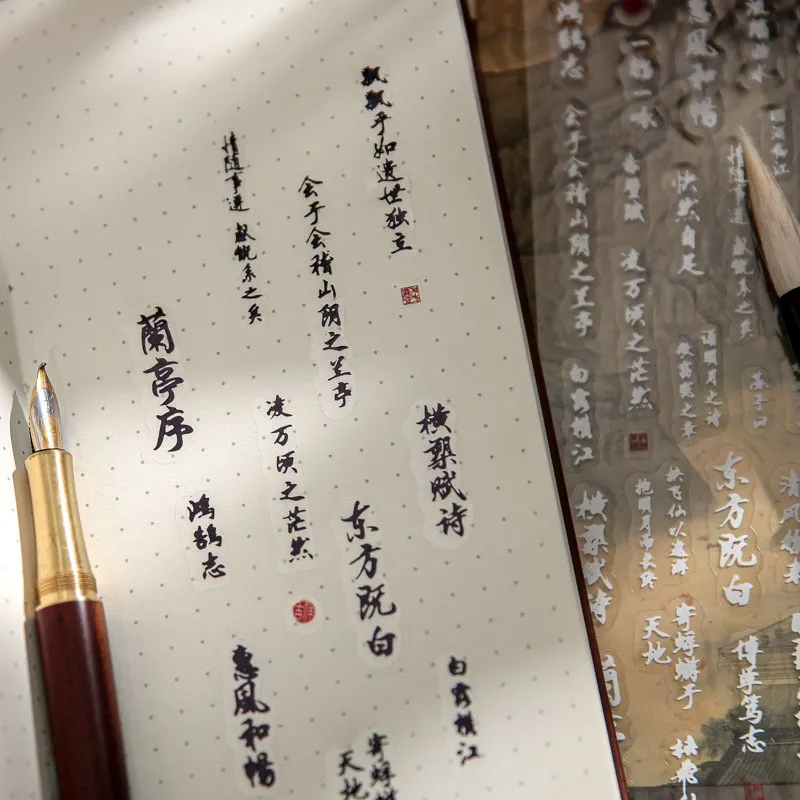 飘飘乎如遗世独立
情随事迁 感慨系之矣
会于会稽山阴之兰亭
蘭亭序
凌万顷之茫然
横槊赋诗
鸿鹄志
东方既白
惠風和暢
白露横江
寄蜉蝣于
天地
鸿鹄志
惠風和暢
会于会稽山阴之兰亭
赤壁赋
快然自足
情随事迁 感慨系之矣
凌万顷之茫然
诵明月之诗
白露横江
横槊赋诗
挟飞仙以遨游
抱明月而长终
东方既白
寄蜉蝣于
天地
博学笃志